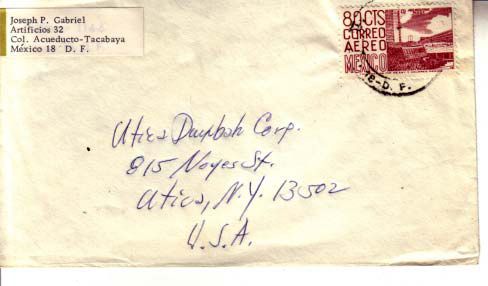 Joseph P. Gabriel
Artificios 32
Col. Acueducto-Tacabaya
México 18 D. F.
80 CTS
CORREO
AEREO
MEXICO
18-D. F.
Utica Duxbak Corp.
815 Noyes St.
Utica, N.Y. 13502
U.S.A.